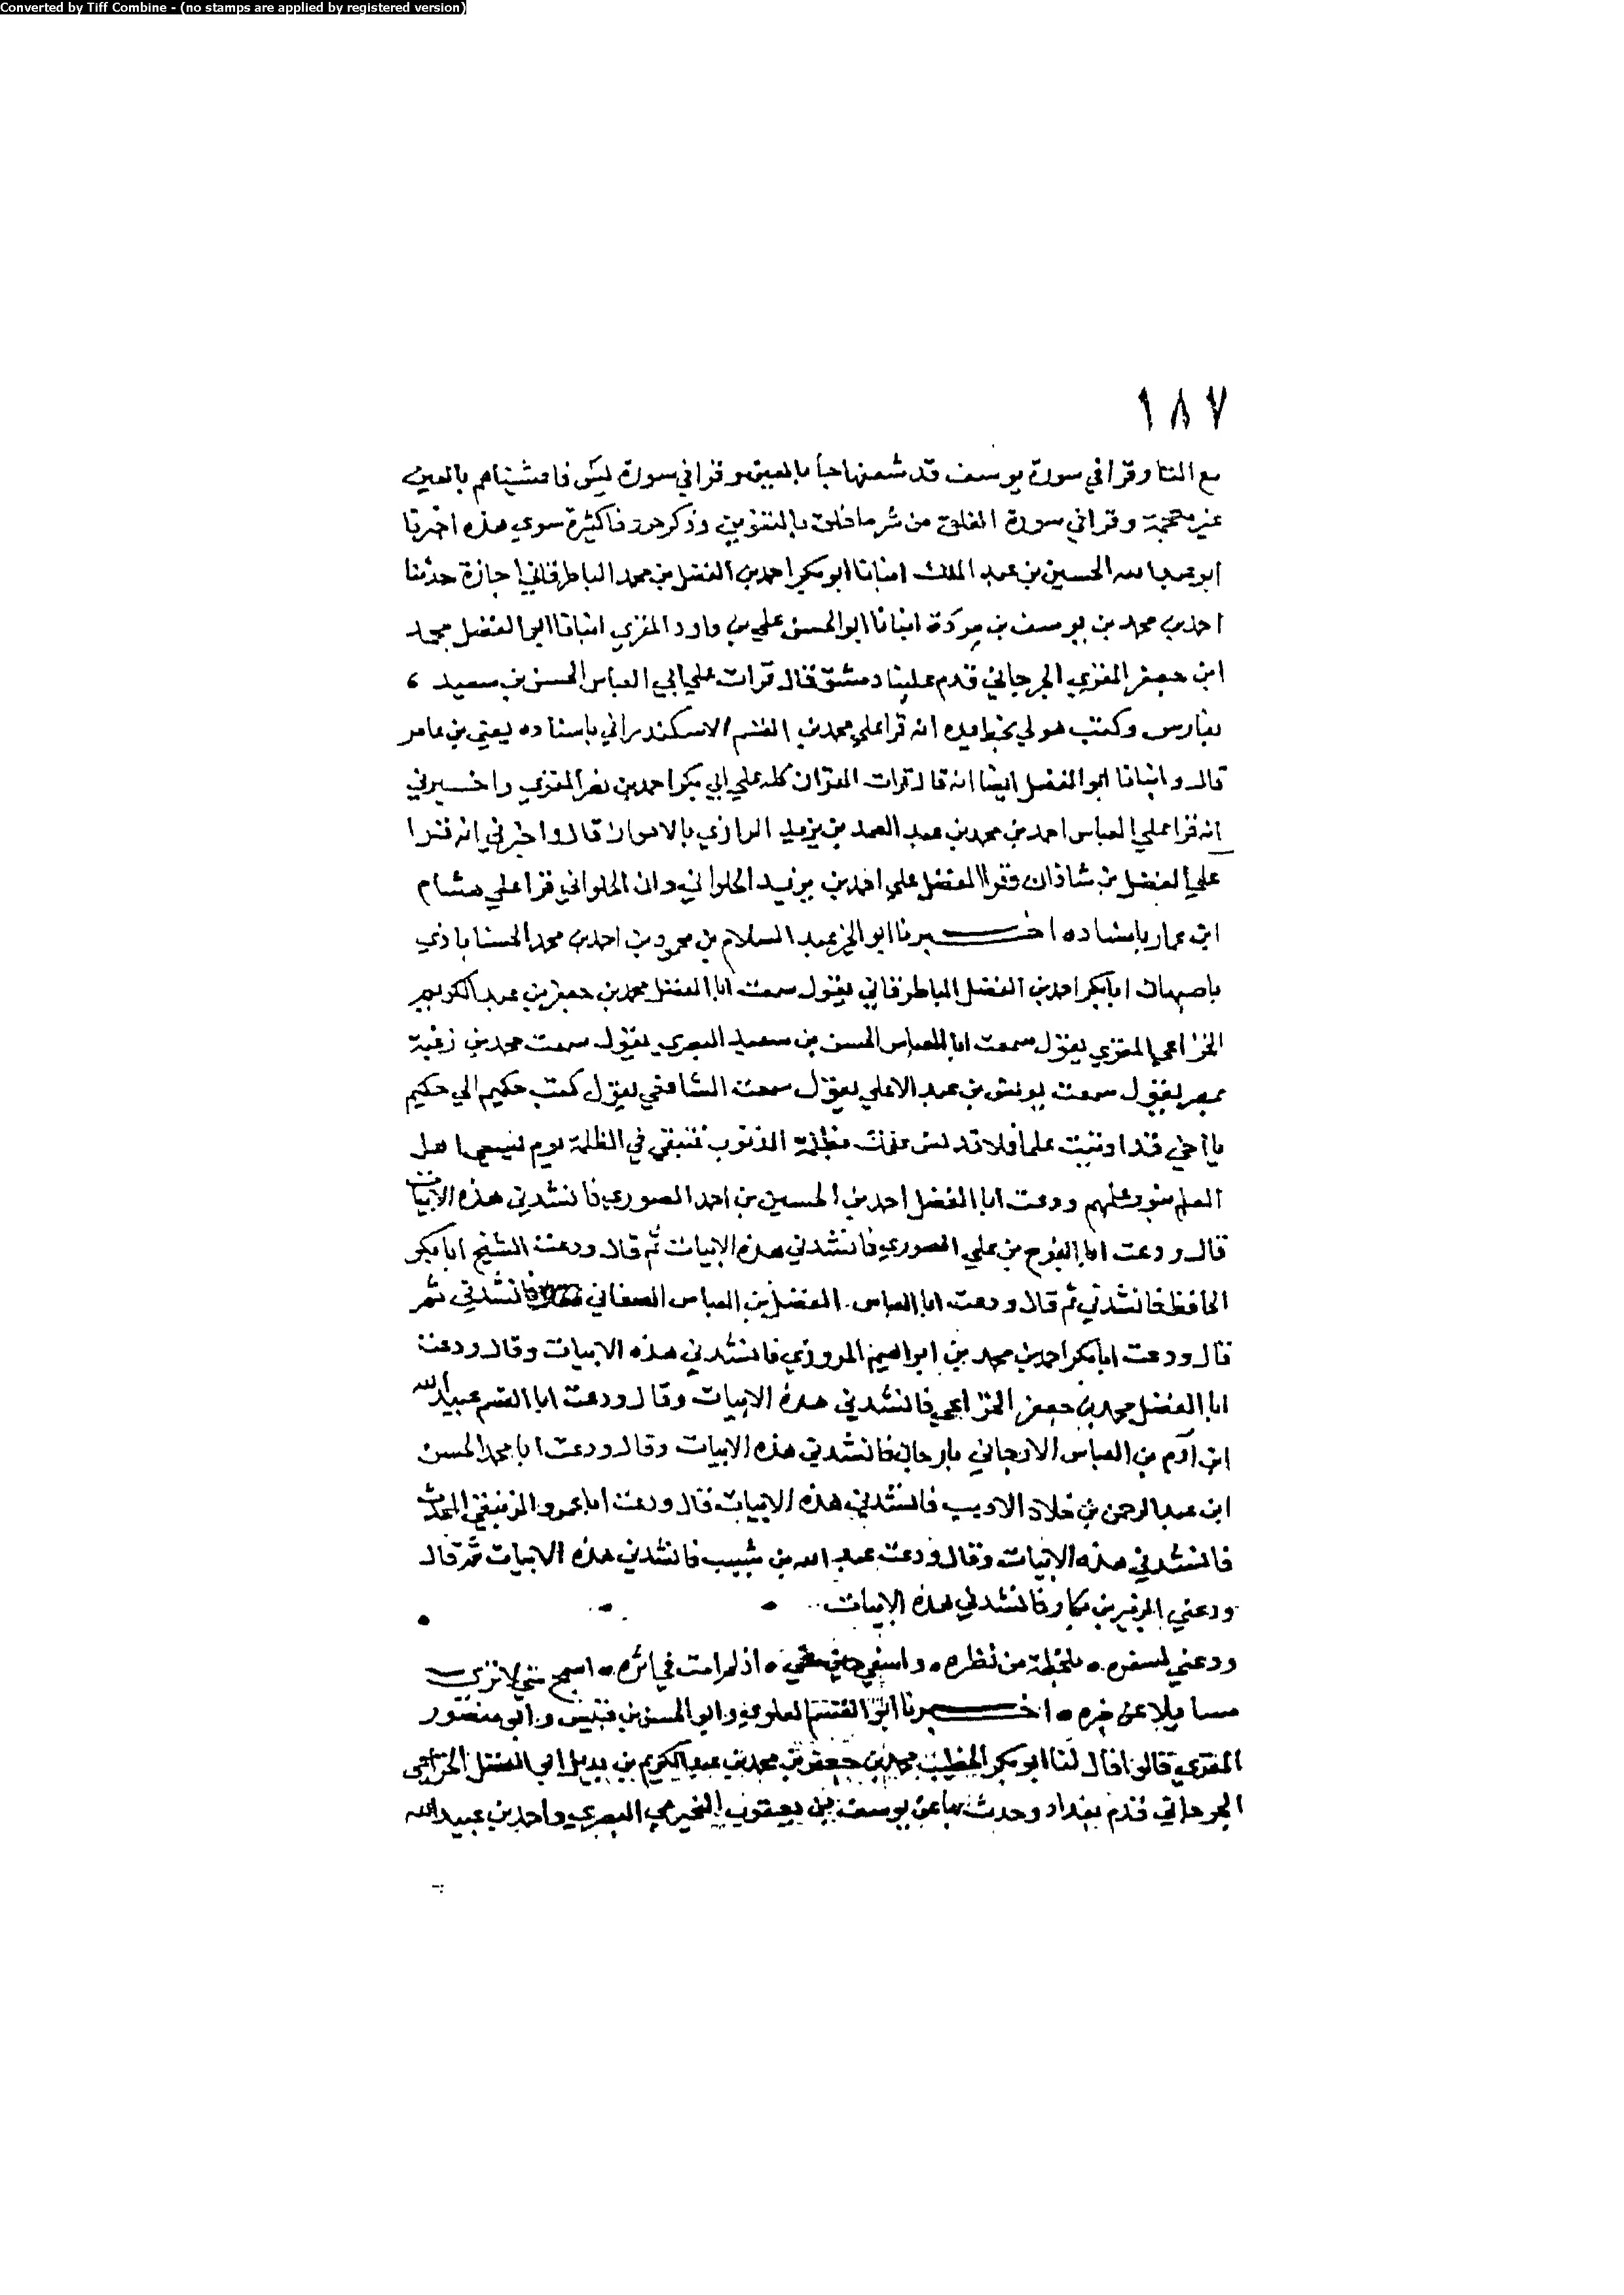 Converted by Tiff Combine - (no stamps are applied by registered version)
١٨٧
مع التا وقرا في سورة يوسف قد شعفها حبا بالعين وقرا في سورة يس فاعشيناهم بالعين
غير معجمة وقرا في سورة الفلق من شر ما خلق بالتنوين وذكر حروفا كثيرة سوى هذه اخبرنا
ابو عبد الله الحسين بن عبد الملك انبانا ابو بكر احمد بن الفضل بن محمد الباطرقاني اجازة حدثنا
احمد بن محمد بن يوسف بن مردة انبانا ابو الحسن علي بن داود المقري انبانا ابو الفضل محمد
ابن جعفر المقري الجرجاني قدم علينا دمشق قال قرات علي ابي العباس الحسن بن سعيد ،
بفارس وكتب هو لي بخط يده انه قرا علي محمد بن القسم الاسكندراني باسناده يعني بن عامر
قال وانبانا ابو الفضل ايضا انه قال قرات القران كله علي ابي بكر احمد بن نصر المقري واخبرني
انه قرا علي العباس احمد بن محمد بن عبد الصمد بن يزيد الرازي بالاهواز قال واخبرني انه قرا
علي الفضل بن شاذان وقرا الفضل علي احمد بن يزيد الحلواني وان الحلواني قرا علي هشام
ابن عمار باسناده اخبرنا ابو الخير عبد السلام بن محمود بن احمد بن محمد الحسنا باذي
باصبهان ابا بكر احمد بن الفضل الباطرقاني يقول سمعت ابا الفضل محمد بن جعفر بن عبد الكريم
الخزاعي المقري يقول سمعت ابا العباس الحسن بن سعيد البصري يقول سمعت محمد بن زغبة
بمصر يقول سمعت يونس بن عبد الاعلي يقول سمعت الشافعي يقول كتب حكيم الي حكيم
يا اخي قد اوتيت علما فلا تدنس علمك بظلمة الذنوب فتبقي في الظلمة يوم يسعى اهل
العلم بنور علمهم ودعت ابا الفضل احمد بن الحسين بن احمد الصوري فانشدني هذه الابيات
قال ودعت ابا الفرج بن علي الصوري فانشدني هذه الابيات ثم قال ودعت الشيخ ابا بكر
الحافظ فانشدني ثم قال ودعت ابا العباس الفضل بن العباس الصغاني فانشدني ثم
قال ودعت ابا بكر احمد بن محمد بن ابراهيم المروزي فانشدني هذه الابيات وقال ودعت
ابا الفضل محمد بن جعفر الخزاعي فانشدني هذه الابيات وقال ودعت ابا القسم عبيد الله
ابن آدم بن العباس الارجاني بارجان فانشدني هذه الابيات وقال ودعت ابا محمد الحسن
ابن عبد الرحمن بن خلاد الاديب فانشدني هذه الابيات قال ودعت ابا عمرو المحدث
فانشدني هذه الابيات وقال ودعت عبد الله بن شبيب فانشدني هذه الابيات ثم قال
ودعني الزبير بن بكار فانشدني هذه الابيات
ودعني لسفره بلحظة من نظره واسفي اذ لم امت في اثره اصبح مني لا تري
مسايلا عن خبره اخبرنا ابو القسم العلوي وابو الحسن بن قبيس وابو منصور
المقري قالوا قال لنا ابو بكر الخطيب محمد بن جعفر بن محمد بن عبد الكريم بن بديل ابي الفضل الخزاعي
الجرجاني قدم بغداد وحدث بها عن يوسف بن يعقوب النجيرمي البصري واحمد بن عبيد الله